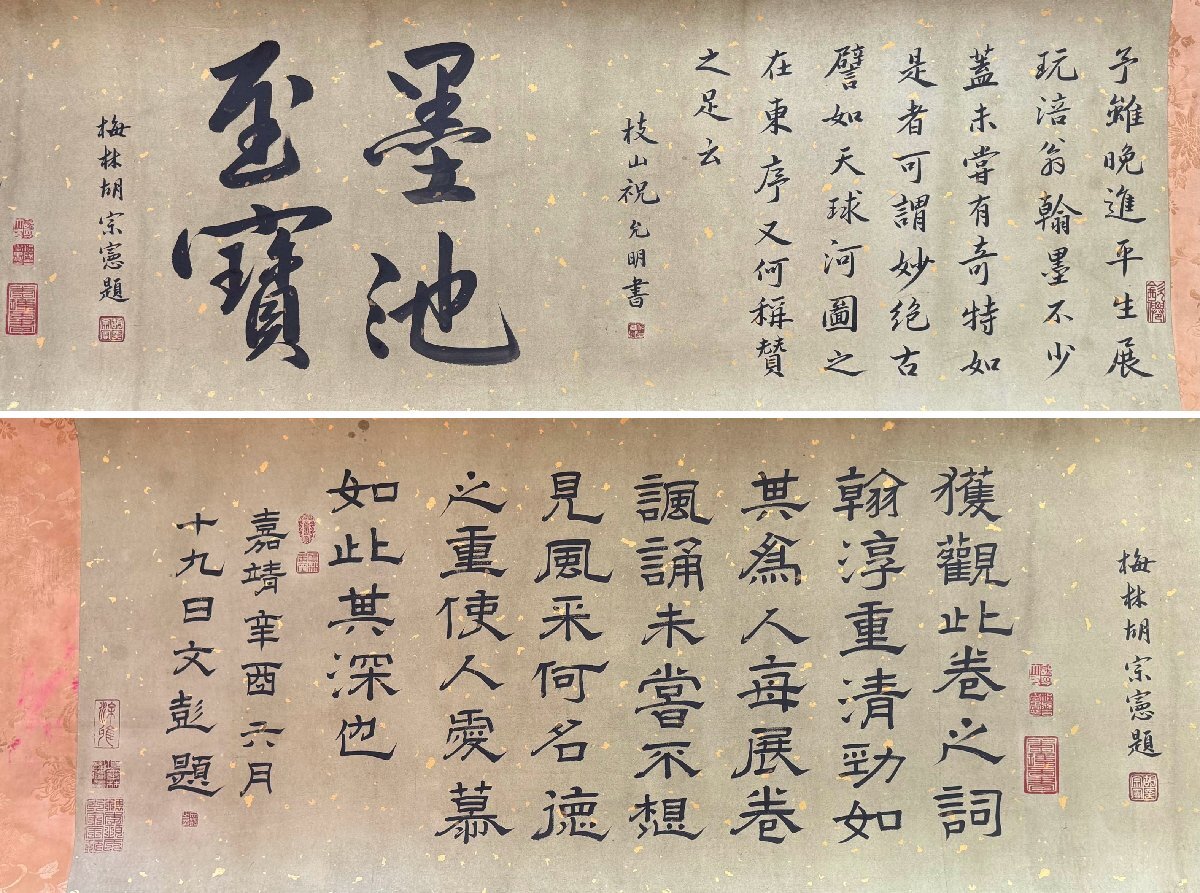 予雖晚進平生展
玩涪翁翰墨不少
蓋未嘗有奇特如
是者可謂妙絕古
譬如天球河圖之
在東序又何稱贊
之足云
枝山祝允明書
墨池
至寶
梅林胡宗憲題
梅林胡宗憲題
獲觀此卷之詞
翰淳重清勁如
其為人每展卷
諷誦未嘗不想
見風采何名德
之重使人愛慕
如此其深也
嘉靖辛酉六月
十九日文彭題